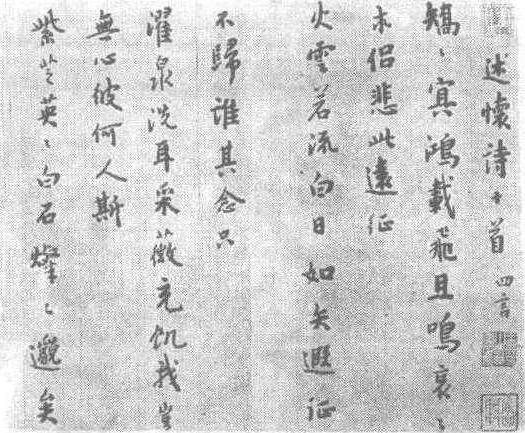 述懷詩十首 四言
矯〻冥鴻載飛且鳴哀〻
求侶悲此遠征
火雲若流白日如矢遐征
不歸誰其念只
濯泉洗耳采薇充飢我豈
無心彼何人斯
紫芝英〻白石燦〻邈矣